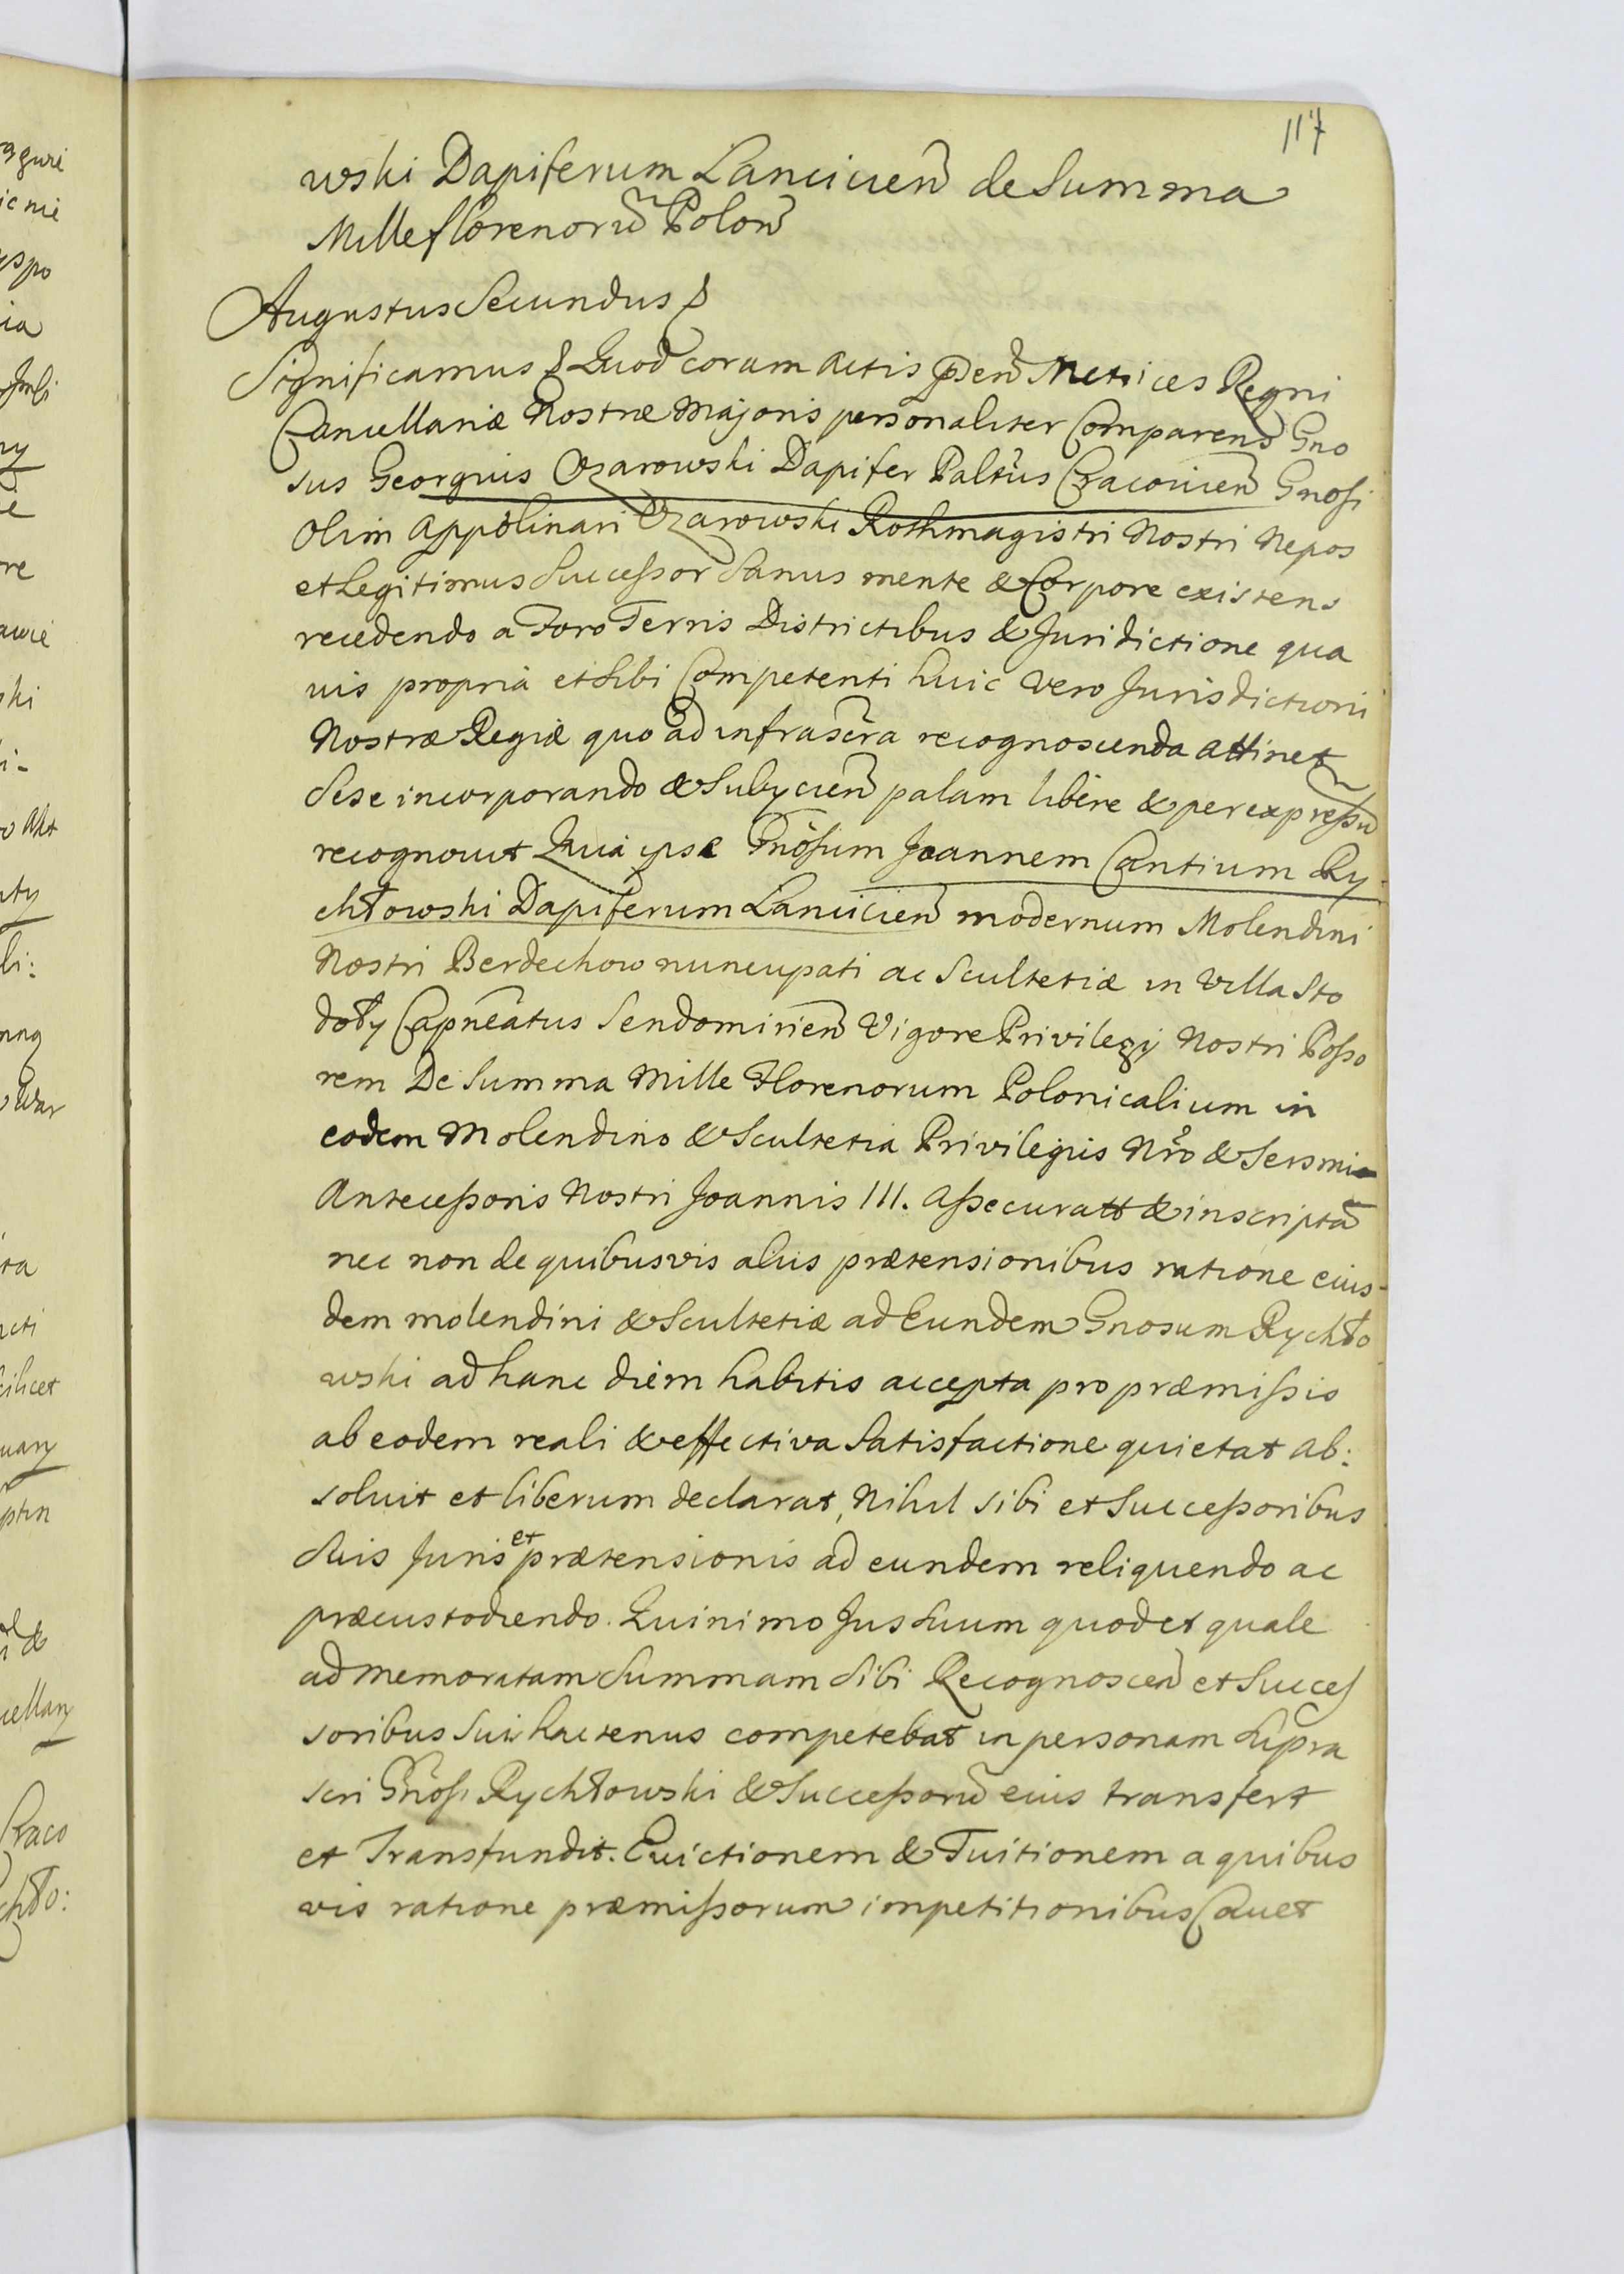 117
wski Dapiferum Lanciciens̃ de Summa
Mille florenorũ Poloñ
Augustus Secundus
Significamus Quod coram Actis p̃deñ Metrices Regni
Cancellariæ Nostræ Majoris personaliter Comparens Gno
sus Georgius Ożarowski Dapifer Palt̃us Cracovieñ Gnosi
olim Appolinari Ożarowski Rothmagistri Nostri Nepos
et Legitimus Successor Sanus mente & Corpore existens
recedendo a Foro Terris Districtibus & Juridictione qua
vis propria et Sibi Competenti huic vero Jurisdictioni
Nostræ Regiæ quo ad infrascr̃a recognoscenda attinet
Sese incorporando & Subycieñ palam libere & per expressũ
recognovit Quia ipse Gñosum Joannem Cantium Ry
chłowski Dapiferum Lancicieñ modernum Molendini
Nostri Berdechow nuncupati ac Scultetiæ in Villa Sto
doły Capñeatus Sendomirieñ Vigore Privilegy Nostri Posso
rem De Summa Mille Florenorum Polonicalium in
eodem Molendino & Scultetia Privilegiis Nr̃o & Sersmi
Antecessoris Nostri Joannis III. Assecuratt & inscriptã
nec non de quibusvis aliis prætensionibus ratione eius-
dem molendini & Scultetiæ ad Eundem Gnosum Rychło
wski ad hanc diem habitis accepta pro præmissis
ab eodem reali & effectiva Satisfactione quietat ab:
soluit et liberum declarat, Nihil sibi et Successoribus
Suis Juris et prætensionis ad eundem reliquendo ac
præcustodiendo. Quinimo Jus Suum quod et quale
ad memoratam Summam Sibi Recognosceñ et Succes
soribus Suis hactenus competebat in personam Supra
scri Gñosi Rychłowski & Successorũ eius transfert
et Transfundit. Evictionem & Tuitionem a quibus
vis ratione præmissorum impetitionibus Cavet